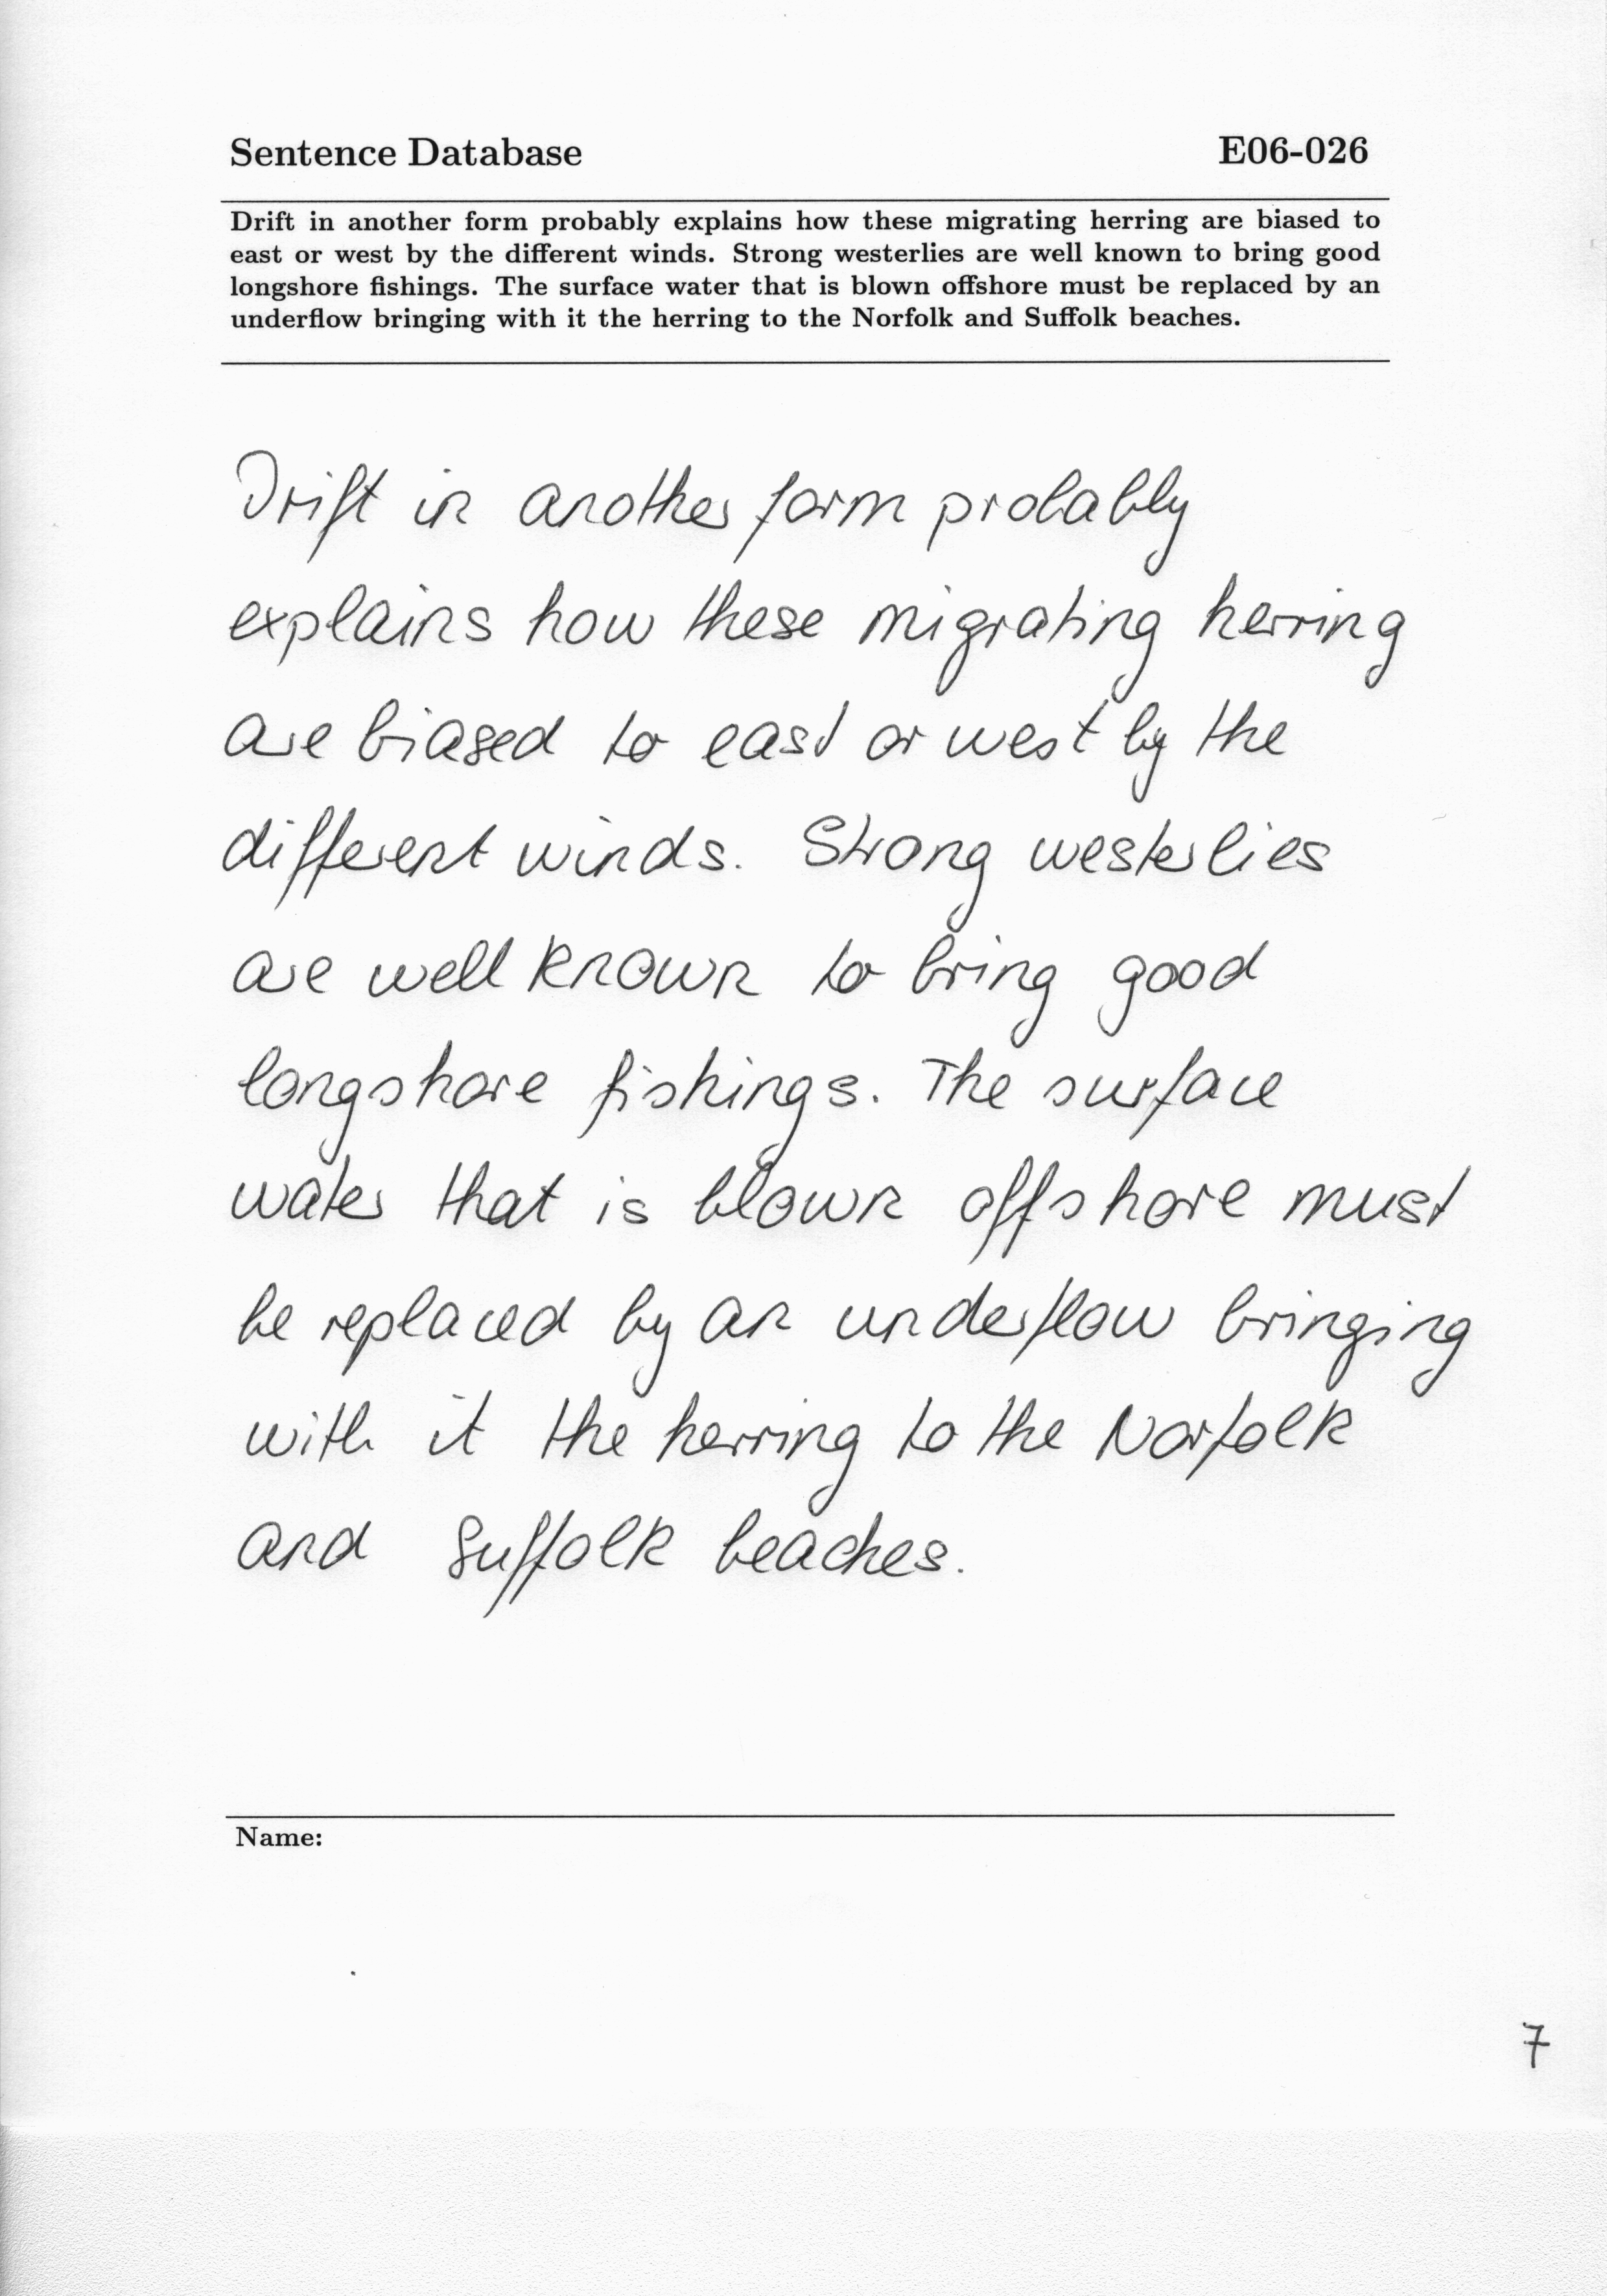 Sentence Database E06-026
Drift in another form probably explains how these migrating herring are biased to
east or west by the different winds. Strong westerlies are well known to bring good
longshore fishings. The surface water that is blown offshore must be replaced by an
underflow bringing with it the herring to the Norfolk and Suffolk beaches.
Drift in another form probably
explains how these migrating herring
are biased to east or west by the
different winds. Strong westerlies
are well known to bring good
longshore fishings. The surface
water that is blown offshore must
be replaced by an underflow bringing
with it the herring to the Norfolk
and Suffolk beaches.
Name:
7